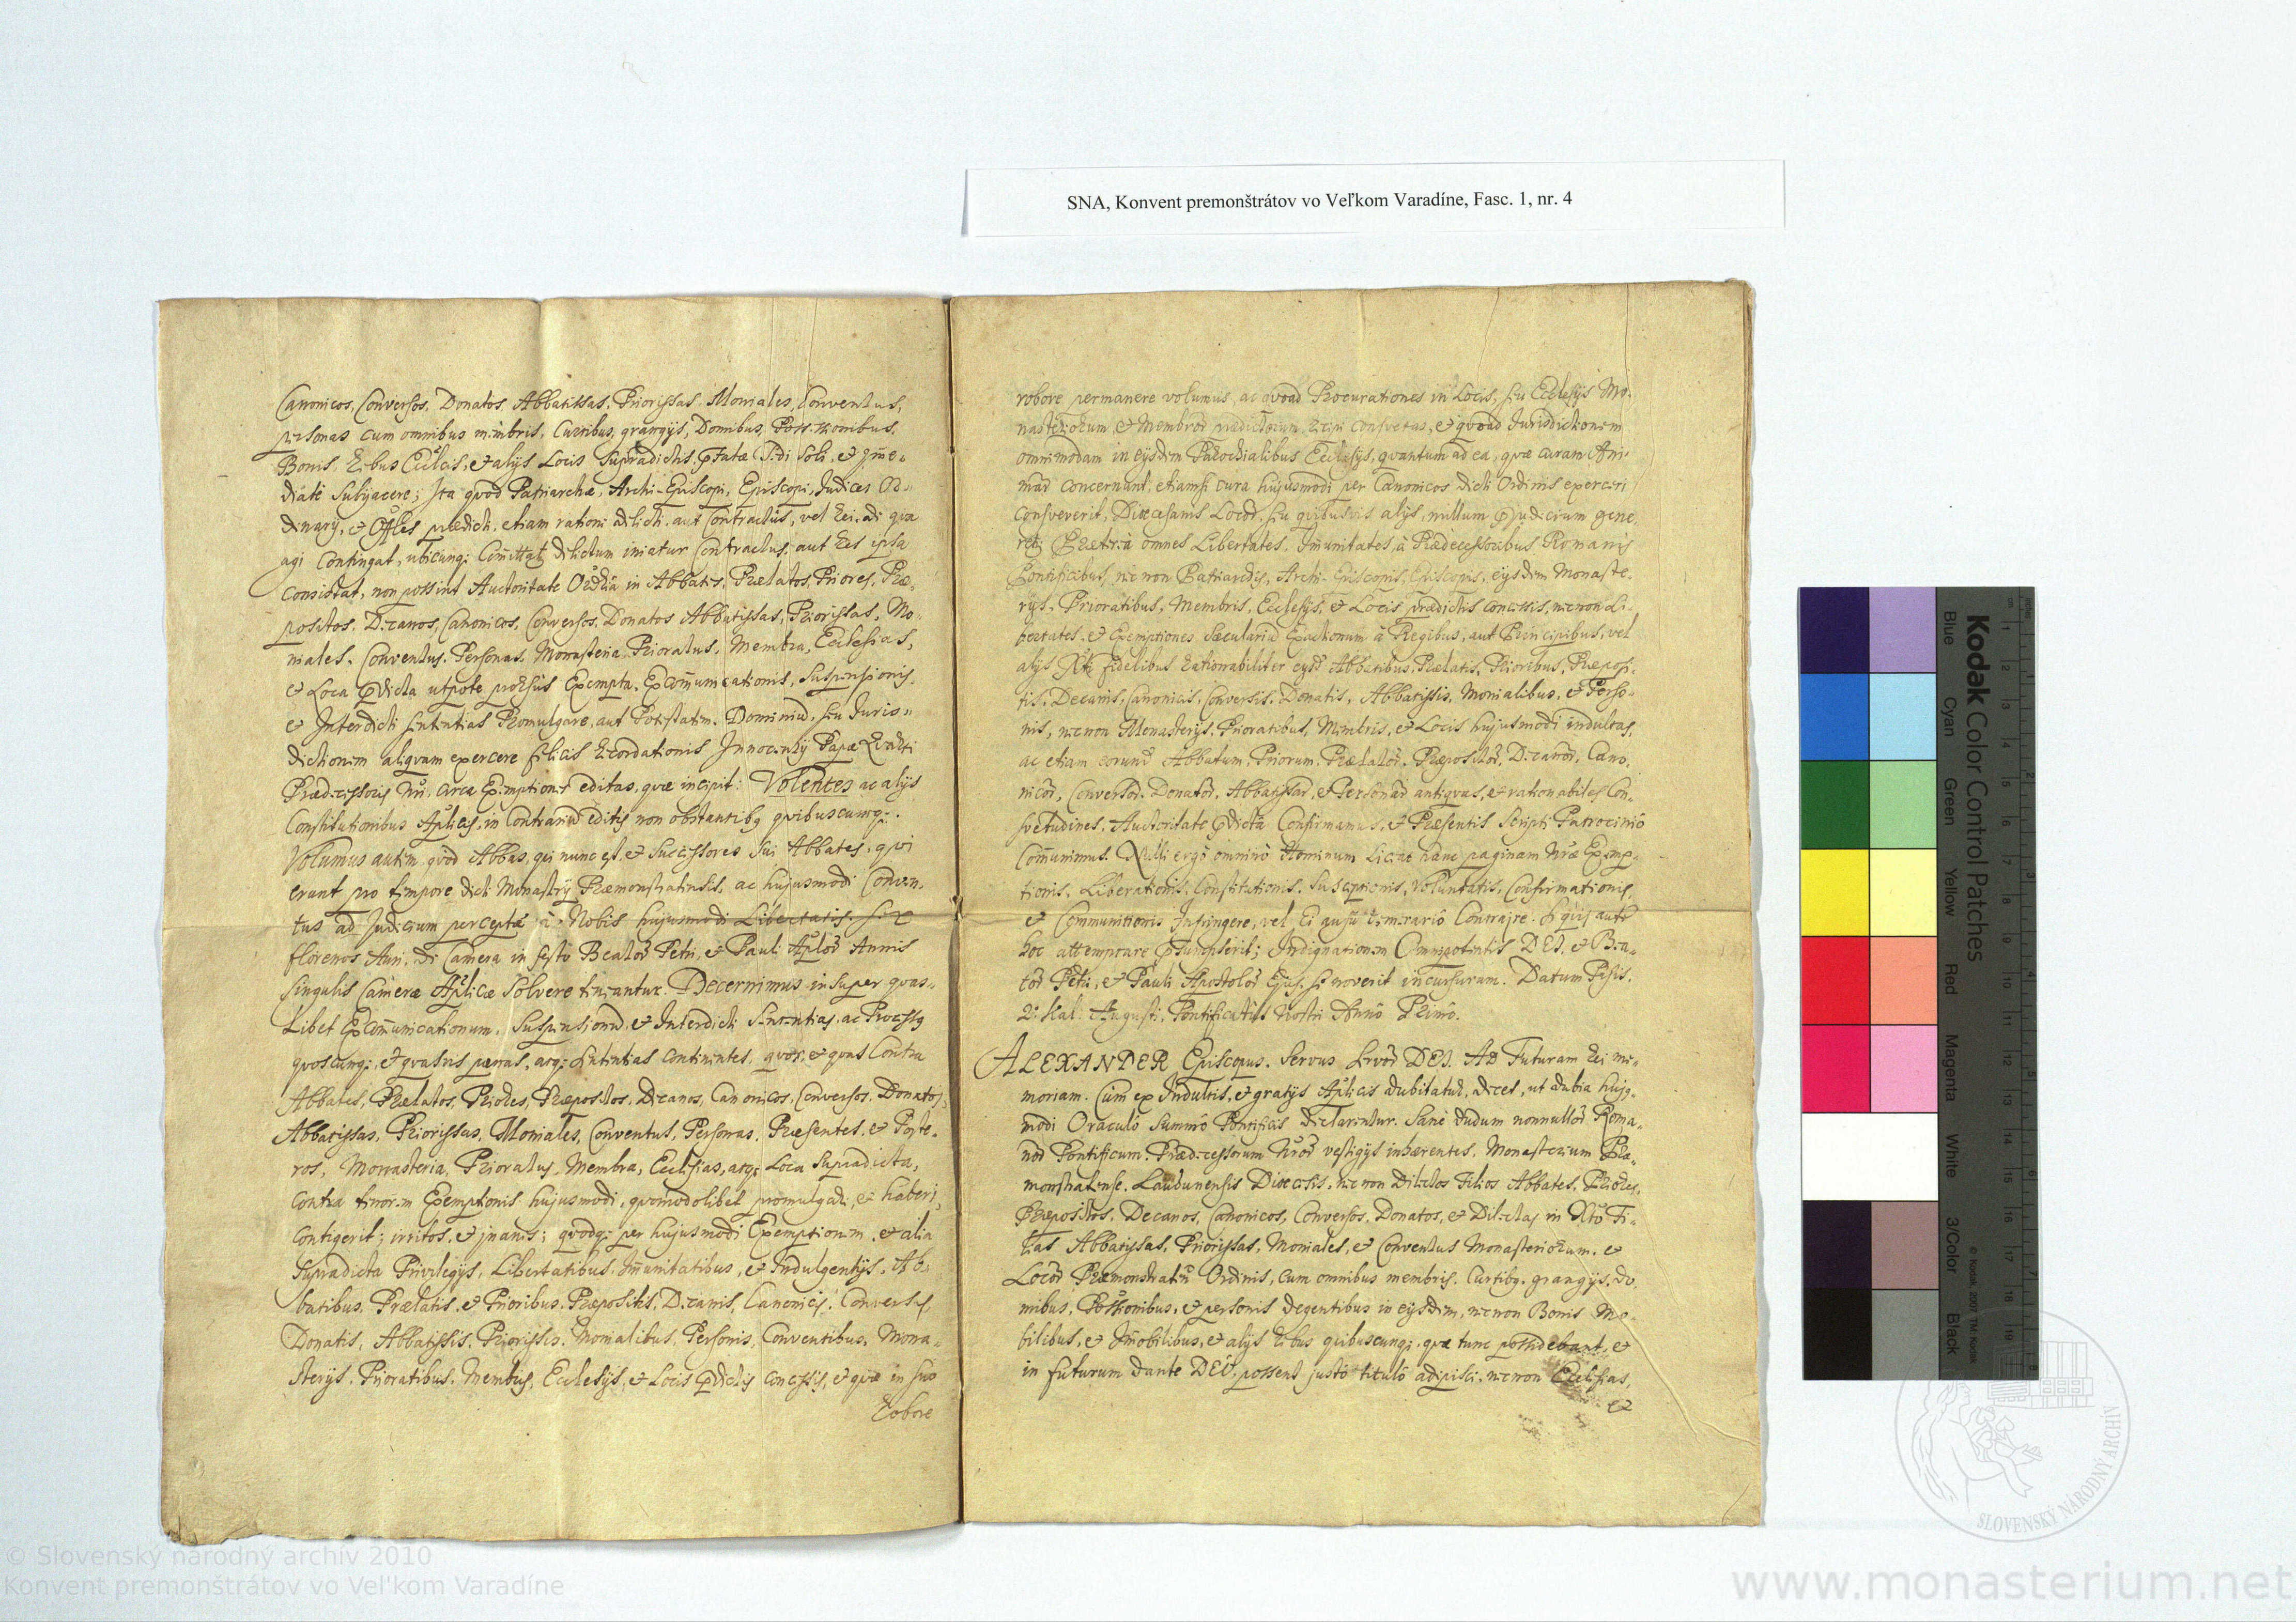 SNA, Konvent premonštrátov vo Veľkom Varadíne, Fasc. 1, nr. 4
Canonicos, Conversos, Donatos, Abbatissas, Priorissas, Moniales, Conventus,
personas cum omnibus membris, Curtibus, grangijs, Domibus, Possessionibus,
Bonis, Rebus Ecclis, et alijs Locis Supradictis, Sedi Soli, et
diatè Subijacere; Ita quod Patriarchæ, Archi-Episcopi, Episcopi, Judices Or-
dinarij, et Offles prædicti, etiam ratione delicti, aut Contractûs, vel Rei, de qua
agi Contingat, ubicunq; Committat delictum iniatur Contractus, aut Res ipsa
Consistat, non possint Auctoritate in Abbates, Prælatos, Priores, Præ-
positos, Decanos, Canonicos, Conversos, Donatos Abbatissas, Priorissas, Mo-
niales, Conventus, Personas, Monasteria Prioratus, Membra, Ecclesias,
et Loca utpote prorsùs Exempta, Excommunicationis, Suspensionis,
et Interdicti sententias Promulgare, aut Potestatem, Dominium, seu Juris-
dictionem aliquam exercere felicis Recordationis Innocentij Papæ Quarti
Prædecessoris Nri, circa Exemptiones editas, quæ incipit: Volentes ac alijs
Constitutionibus Aplicis, in Contrarium editis non obstantibq quibuscumq;.
Volumus autem quòd Abbas, qui nunc est, et Successores Sui Abbates, qui
erunt pro tempore dicti Monasterij Præmonstratensis, ac hujusmodi Conven-
tus ad Judicium perceptæ à Nobis hujusmodi Libertatis,
florenos Auri de Camera in festo Beator Petri, et Pauli Aplor Annis
singulis Cameræ Aplicæ Solvere teneantur. Decernimus insuper quas-
Libet Excommunicationum, Suspensionum, et Interdicti Sententias, ac Processq
quoscunq; et quasvis pænas, atq; sententias continentes, quos, et quas Contra
Abbates, Prælatos, Priores, Præpositos, Decanos, Canonicos, Conversos, Donatos,
Abbatissas, Priorissas, Moniales, Conventus, Personas, Præsentes, et Poste-
ros, Monasteria, Prioratus, Membra, Ecclesias, atq; Loca Supradicta,
contra tenorem Exemptionis hujusmodi, quomodolibet promulgari, et haberi
contigerit; irritos, et inanes; quodq; per hujusmodi Exemptionem, et alia
Supradicta Privilegijs, Libertatibus, Immunitatibus, et Indulgentijs, Ab-
batibus, Prælatis, et Prioribus, Præpositis, Decanis, Canonicis, Conversis,
Donatis, Abbatissis, Priorissis, Monialibus, Personis, Conventibus, Mona-
sterijs, Prioratibus, Membris, Ecclesijs, et Locis concessis, et quæ in suo
Robore
robore permanere volumus, ac quoad Procurationes in Locis, seu Ecclesijs Mo-
nasteriorum et Membror prædictorum, recipi consuetas, et quoad Jurisdictionem
omnimodam in eijsdem Parochialibus Ecclesijs, quantum ad ea, quæ curam Ani-
mar concernant, etiamsi cura hujusmodi per Canonicos dicti Ordinis exerceri
Consveverit, Diœcesanis Locor, seu quibusvis alijs, nullum gene-
ret; Prætereà omnes Libertates, Immunitates, à Prædecessoribus Romanis
Pontificibus, nec non Patriarchis, Archi-Episcopis, Episcopis, eijsdem Monaste-
rijs, Prioratibus, Membris, Ecclesijs, et Locis prædictis concessis, nec non Li-
bertates, et Exemptiones Sæcularium Exactionum à Regibus, aut Principibus, vel
alijs Xti fidelibus rationabiliter Abbatibus, Prælatis, Prioribus, Præposi-
tis, Decanis, Canonicis, Conversis, Donatis, Abbatissis, Monialibus, et Perso-
nis, nec non Monasterijs, Prioratibus, Membris, et Locis hujusmodi indultas,
ac etiam eorund Abbatum, Priorum, Prælator, Præpositor, Decanor, Cano-
nicor, Conversor, Donator, Abbatissar, et Personar antiquas, et rationabiles Con-
svetudines, Auctoritate Confirmamus, et Præsentis Scripti Patrocinio
Communimus. Nulli ergò omninò Hominum liceat hanc paginam Nræ Exemp-
tionis, Liberationis, Constitutionis, Susceptionis, Voluntatis, Confirmationis,
et Communitionis Infringere, vel Ei ausu temerariô Contraire. Si quis autem
hoc attemptare; Indignationem Omnipotentis DEI, et Bea-
tor Petri, et Pauli Apostolor Ejus, se noverit incursurum. Datum Pisis,
2º Kal. Augusti, Pontificatûs Nostri Annô Primô.
ALEXANDER Episcopus, Servus Servor DEI. AD Futuram Rei me-
moriam. Cùm ex Indultis, et gratijs Aplicis dubitatur, decet, ut dubia hujq-
modi Oraculô Summi Pontificis declarentur. Sanè dudum nonnullor Roma-
nor Pontificum, Prædecessorum Nror vestigijs inhærentes, Monasterium Præ-
monstratense, Laudunensis Diœcesis, nec non Dilectos Filios Abbates, Priores,
Præpositos, Decanos, Canonicos, Conversos, Donatos, et Dilectas in Xto Fi-
lias Abbatissas, Priorissas, Moniales, et Conventus Monasteriorum, et
Locor Præmonstraten Ordinis, cum omnibus membris, Curtibq, grangijs, do-
mibus, Possionibus, et personis degentibus in eijsdem, nec non Bonis Mo-
bilibus, et Immobilibus, et alijs Rebus quibuscunq; quæ tunc possidebant, et
in futurum dante DEO, possent justô titulô adipisci, nec non Ecclesias,
et
Kodak Color Control Patches
Blue Cyan Green Yellow Red Magenta White 3/Color Black
© Kodak, 2007 TM: Kodak
SLOVENSKÝ NÁRODNÝ ARCHÍV
© Slovenský národný archív 2010
Konvent premonštrátov vo Veľkom Varadíne
www.monasterium.net